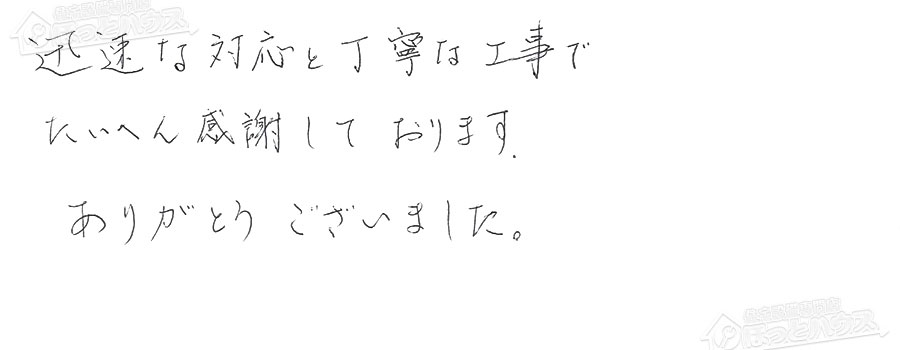 迅速な対応と丁寧な工事で
たいへん感謝しております.
ありがとうございました。
住宅設備専門店
ほっとハウス